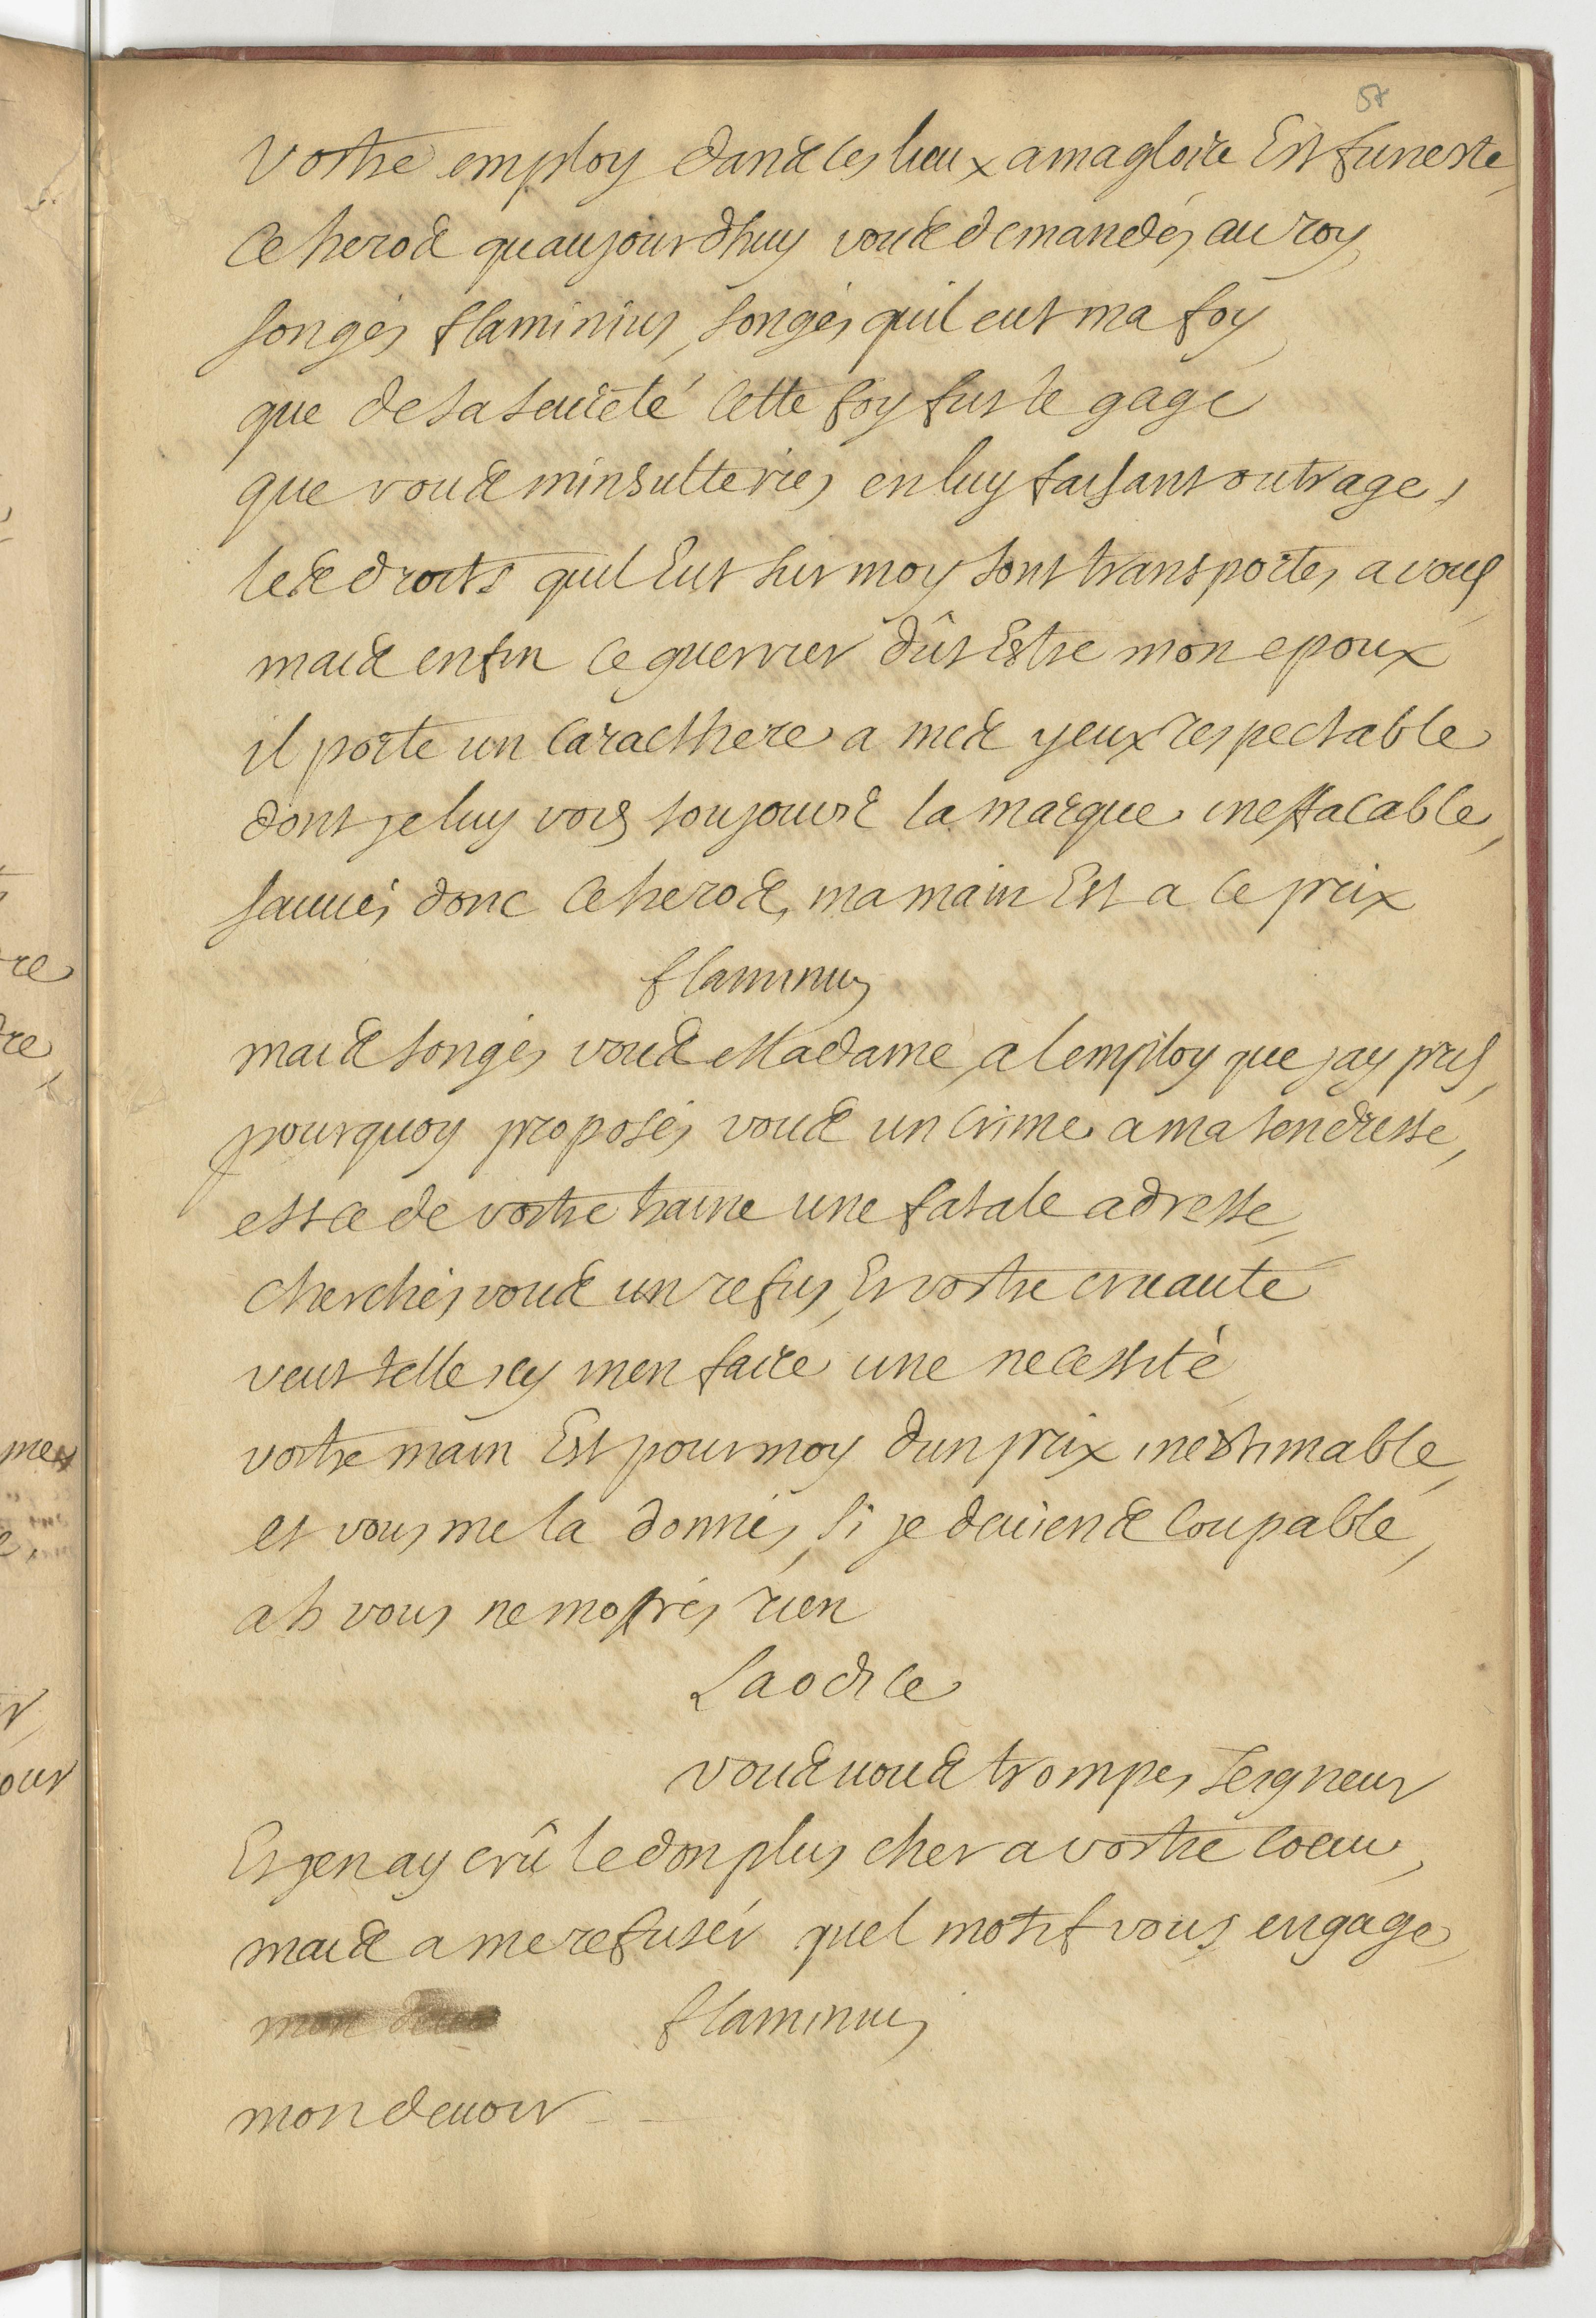 58
Vostre employ dans ces lieux a ma gloire Est funeste,
Ce heros quaujourdhuy vous demandés au roy,
songés flaminius, songés quil eut ma foy,
que de sa seureté cette foy fut le gage
que vous minsulteriés en luy faisant outrage,
les droits quil Eut sur moy sont transportés a vous,
mais enfin ce guerrier dût Estre mon epoux
il porte un caracthere a mes yeux respectable
dont je luy vois toujours la marque ineffacable,
sauués donc ce heros, ma main Est a ce prix
flaminius
mais songés vous Madame, a lemploy que jay pris,
pourquoy proposés vous un crime a ma tendresse,
est ce de vostre haine une fatale adresse,
cherchés vous un refus, Et vostre cruauté
veut telle icy men faire une necessité,
vostre main Est pour moy dun prix inestimable,
et vous me la donnés, si je deuiens coupable,
ah vous ne moffrés rien
Laodice
vous uous trompés, seigneur
Et jen ay crû le don plus cher a vostre coeur,
mais a me refusér quel motif vous engage,
mon flaminius
mon deuoir